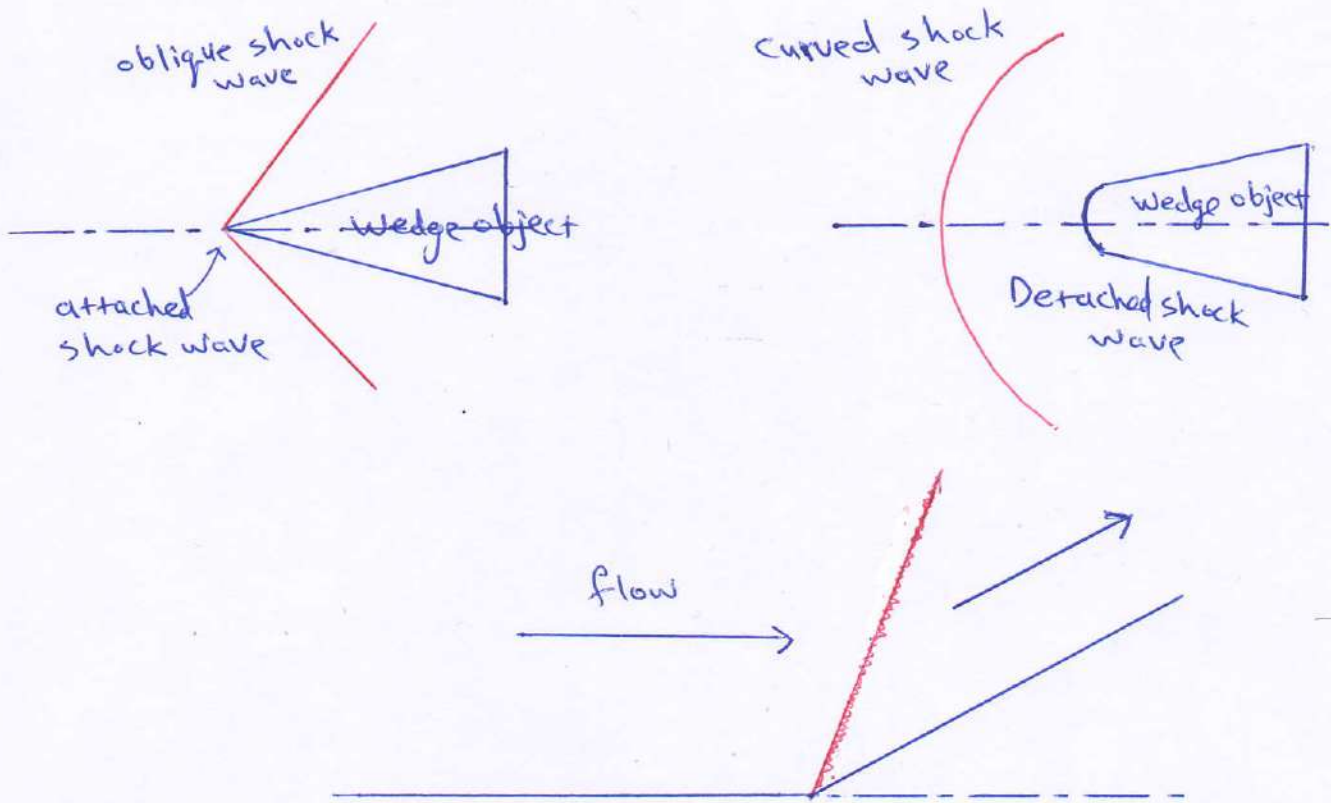 oblique shock
wave
wedge object
attached
shock wave
Curved shock
wave
wedge object
Detached shock
wave
flow